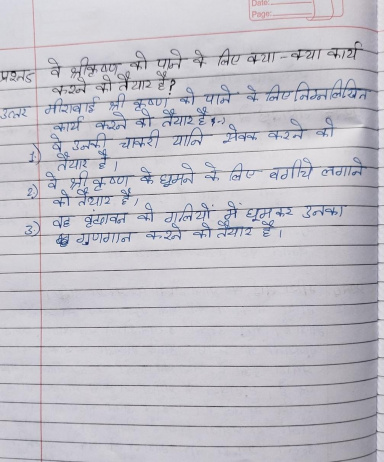 Date:
Page:
प्रश्न5 वे श्रीकृष्ण को पाने के लिए क्या-क्या कार्य
करने को तैयार है?
उत्तर मीराबाई श्री कृष्ण को पाने के लिए निम्नलिखित
कार्य करने को तैयार है :-
1) वे उनकी चाकरी यानि सेवक करने को
तैयार है।
2) वे श्री कृष्ण के घूमने के लिए बगीचे लगाने
को तैयार है,
3) वह वृंदावन की गलियों में घूमकर उनका
गुणगान करने को तैयार है।